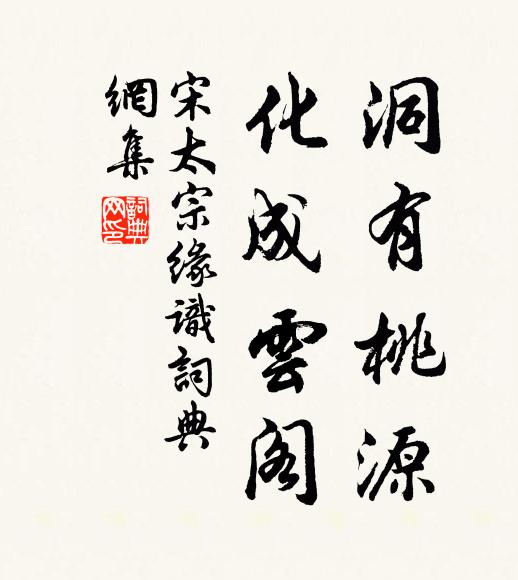 洞有桃源
化成雲閣
宋太宗緣識詞典
網集
詞典
网印